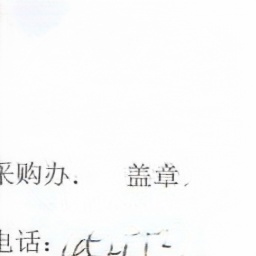 采购办. 盖章.
电话: